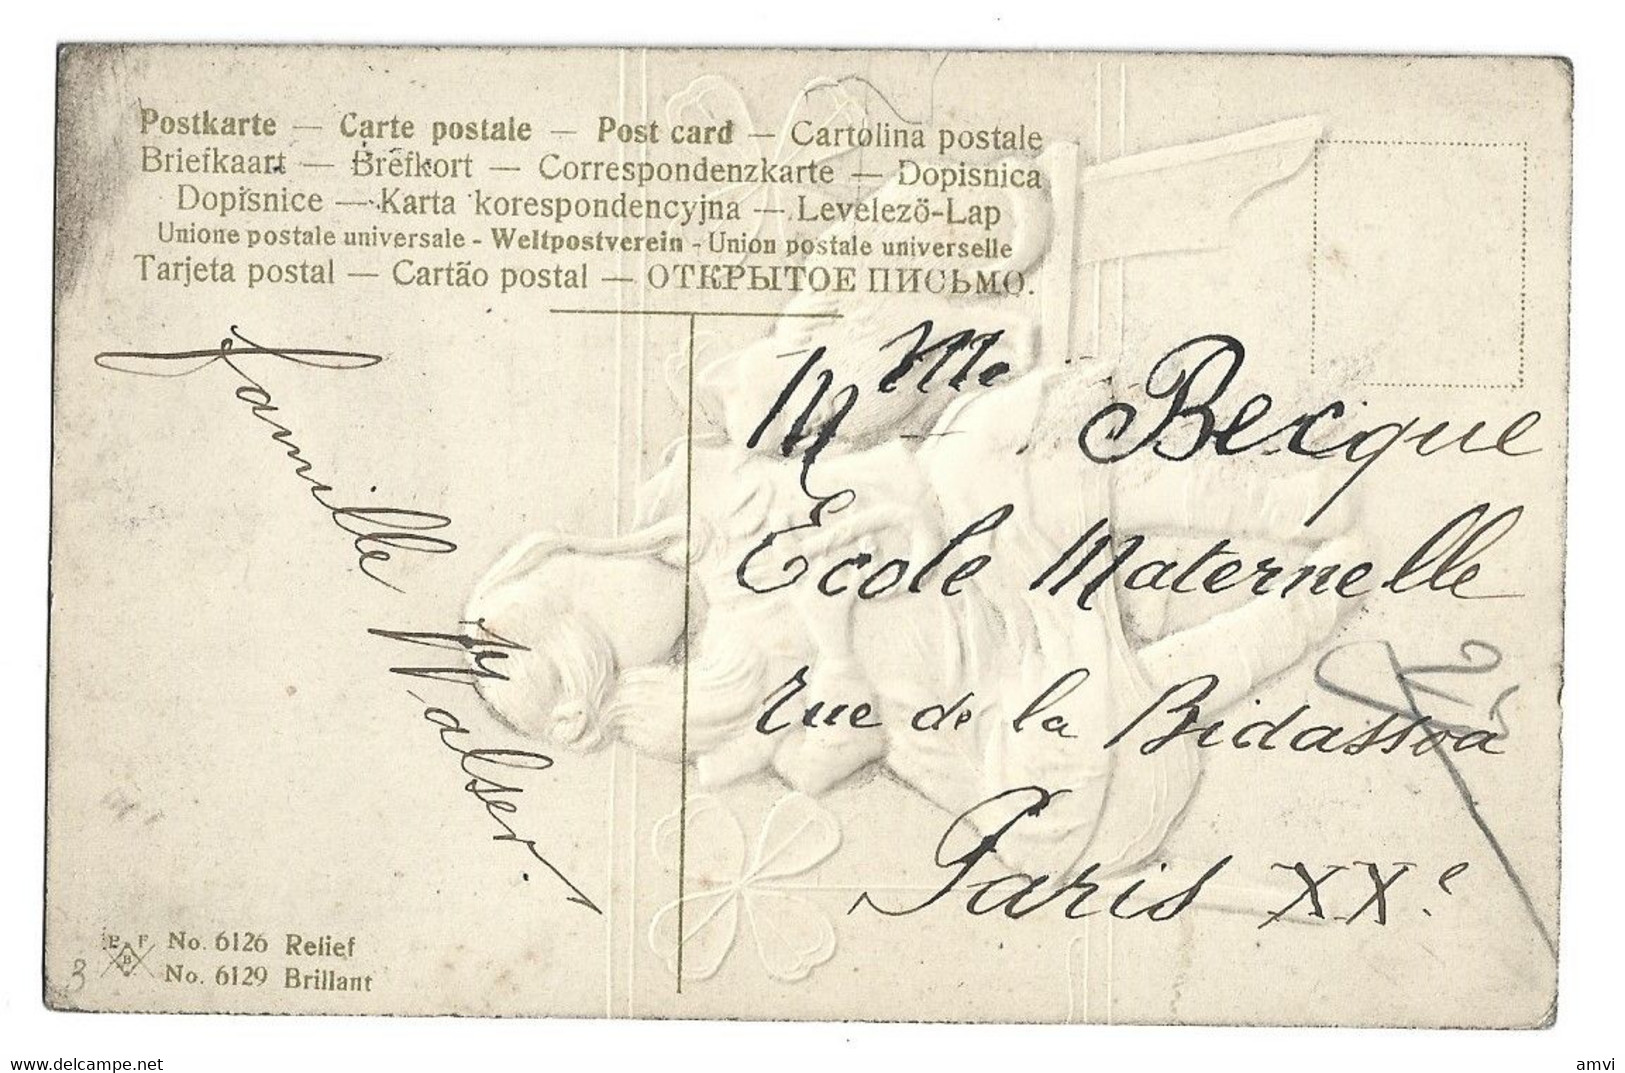 Postkarte — Carte postale — Post card — Cartolina postale
Briefkaart — Brefkort — Correspondenzkarte — Dopisnica
Dopisnice — Karta korespondencyjna — Levelező-Lap
Unione postale universale - Weltpostverein - Union postale universelle
Tarjeta postal — Cartão postal — ОТКРЫТОЕ ПИСЬМО.
Famille Walser
Mlle Becque
Ecole Maternelle
rue de la Bidassoa
Paris XXe
P F
B
No. 6126 Relief
No. 6129 Brillant
3
www.delcampe.net
amvi